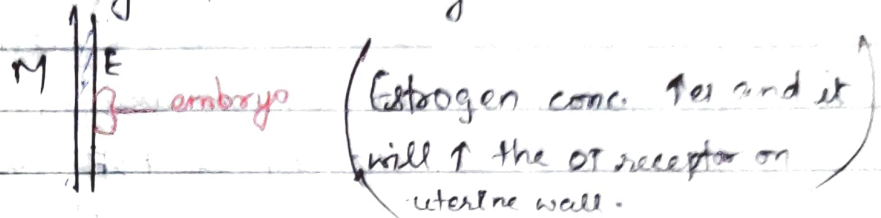 M E
embryo
(Estrogen conc. ↑es and it
will ↑ the OT receptor on
uterine wall.)